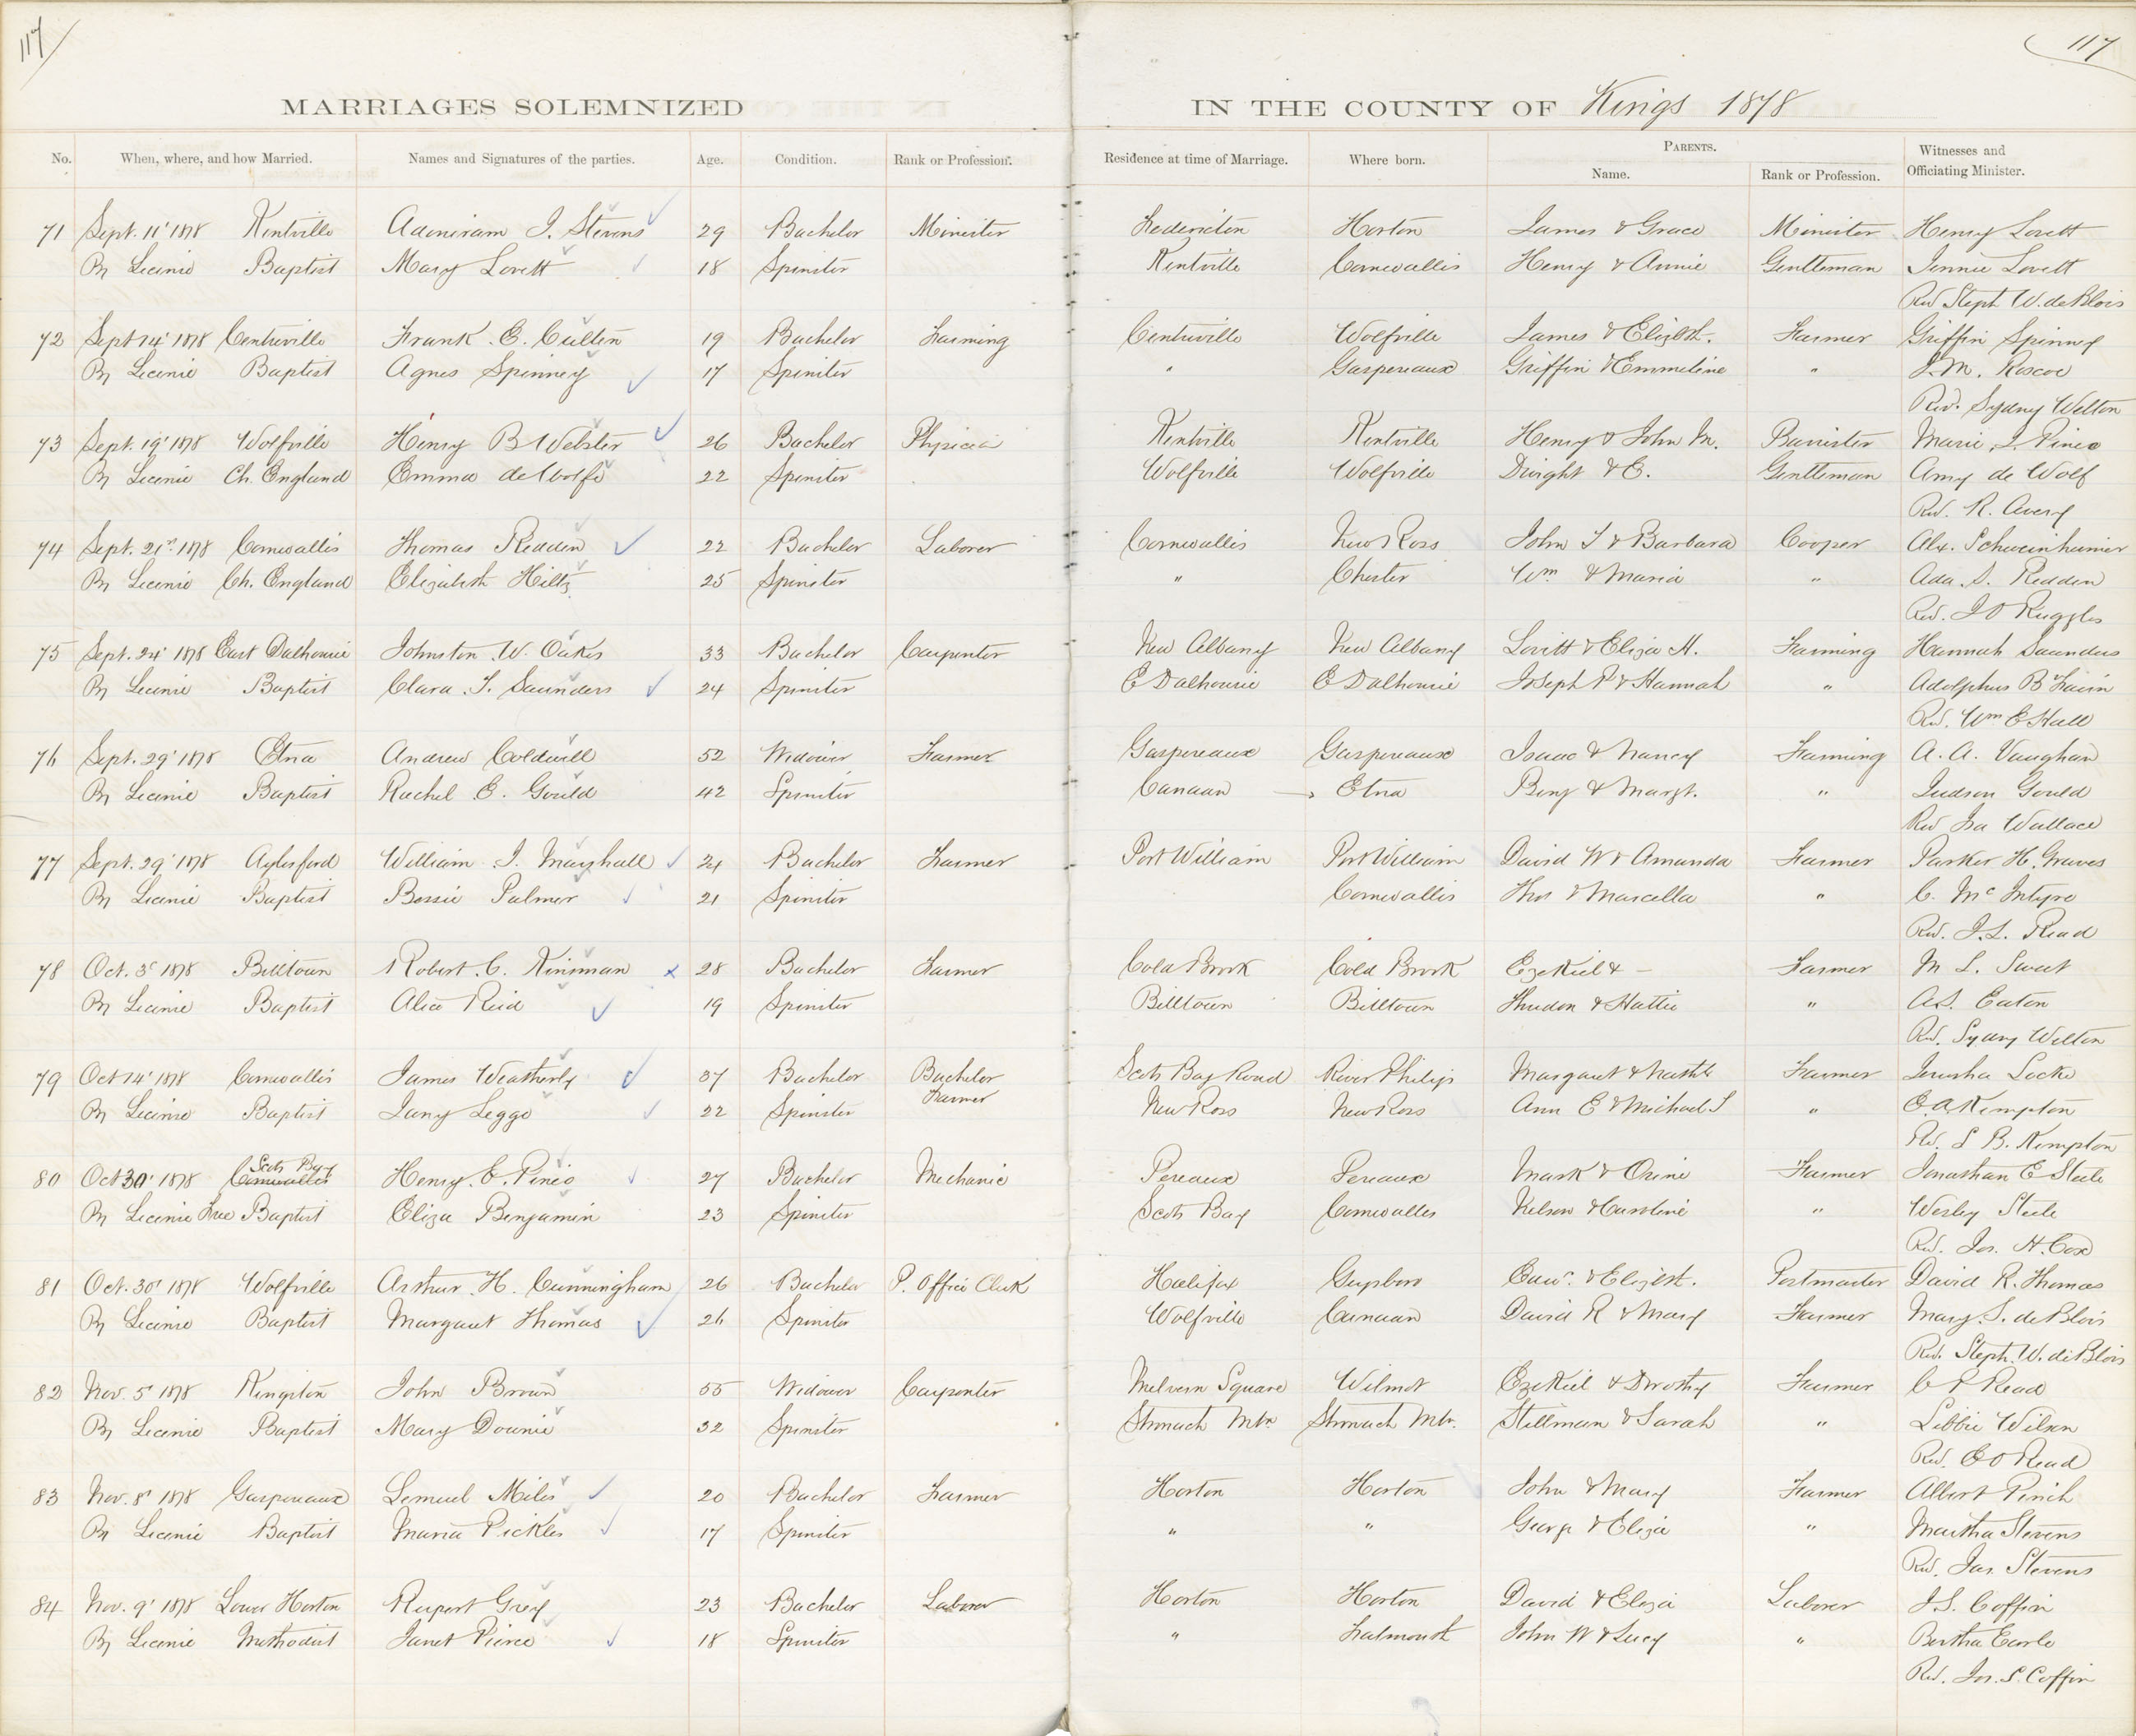 117 117
MARRIAGES SOLEMNIZED IN THE COUNTY OF Kings 1878
No. When, where, and how Married. Names and Signatures of the parties. Age. Condition. Rank or Profession. Residence at time of Marriage. Where born. PARENTS. Name. Rank or Profession. Witnesses and Officiating Minister.
71 Sept. 11' 1878 Kentville Adoniram J. Stevens 29 Bachelor Minister Fredericton Horton James & Grace Minister Henry Lovett
By Licence Baptist Mary Lovett 18 Spinster Kentville Cornwallis Henry & Annie Gentleman Jennie Lovett
Rev Steph W. deBlois
72 Sept 14' 1878 Centreville Frank E. Cullen 19 Bachelor Farming Centreville Wolfville James & Elizbth. Farmer Griffin Spinney
By Licence Baptist Agnes Spinney 17 Spinster " Gaspereaux Griffin & Emmeline " J.M. Roscoe
Rev. Sydney Welton
73 Sept. 19' 1878 Wolfville Henry B Webster 26 Bachelor Physician Kentville Kentville Henry & John M. Barrister Marie J. Pineo
By Licence Ch. England Emma deWolfe 22 Spinster Wolfville Wolfville Dwight & E. Gentleman Amy de Wolf
Rev. R. Avery
74 Sept. 21st 1878 Cornwallis Thomas Redden 22 Bachelor Laborer Cornwallis New Ross John T & Barbara Cooper Alx. Schweinheimer
By Licence Ch. England Elizabeth Hiltz 25 Spinster " Chester Wm & Maria " Ada S. Redden
Rev. J O Ruggles
75 Sept. 24' 1878 East Dalhousie Johnston W. Oakes 33 Bachelor Carpenter New Albany New Albany Lovitt & Eliza A. Farming Hannah Saunders
By Licence Baptist Clara T. Saunders 24 Spinster E Dalhousie E Dalhousie Joseph P & Hannah " Adolphus B
Rev. Wm E Hall
76 Sept. 29' 1878 Etna Andrew Coldwell 52 Widower Farmer Gaspereaux Gaspereaux Isaac & Nancy Farming A. A. Vaughan
By Licence Baptist Rachel E. Gould 42 Spinster Canaan Etna Benj & Margt. " Judson Gould
Rev Isa Wallace
77 Sept. 29' 1878 Aylesford William J. Marshall 24 Bachelor Farmer Port William Port William David W & Amanda Farmer Parker H. Graves
By Licence Baptist Bessie Palmer 21 Spinster Cornwallis Thos & Marcella " C. McIntyre
Rev. J.L. Read
78 Oct. 3' 1878 Billtown Robert C. Kinsman x 28 Bachelor Farmer Cold Brook Cold Brook Ezekiel & – Farmer M L. Sweet
By Licence Baptist Alice Reid 19 Spinster Billtown Billtown & Hattie " A.S. Eaton
Rev. Sydney Welton
79 Oct 14' 1878 Cornwallis James Weatherby 37 Bachelor Bachelor Scots Bay Road River Philip Margaret & Farmer Jerusha Locke
Farmer
By Licence Baptist Jany Legge 22 Spinster New Ross New Ross Ann E & Michael S " E.A Kempton
Rev. S B. Kempton
Scots Bay
80 Oct 30' 1878 Cornwallis Henry E. Pineo 27 Bachelor Mechanic Pereaux Pereaux Mark & Orine Farmer Jonathan E Steele
By Licence Free Baptist Eliza Benjamin 23 Spinster Scots Bay Cornwallis Nelson & Caroline " Wesley Steele
Rev. Jos. H. Cox
81 Oct. 30' 1878 Wolfville Arthur H. Cunningham 26 Bachelor P. Office Clerk Halifax Guysboro Edwd. & Elizbt. Postmaster David R. Thomas
By Licence Baptist Margaret Thomas 26 Spinster Wolfville Canaan David R & Mary Farmer Mary S. deBlois
Rev. Steph. W. deBlois
82 Nov. 5' 1878 Kingston John Brown 55 Widower Carpenter Melvern Square Wilmot Ezekiel & Dorothy Farmer C P Read
By Licence Baptist Mary Downie 32 Spinster Stronach Mtn. Stronach Mtn. Stillman & Sarah " Libbie Wilson
Rev. E O Read
83 Nov. 8' 1878 Gaspereaux Lemuel Miles 20 Bachelor Farmer Horton Horton John & Mary Farmer Albert Pinch
By Licence Baptist Maria Pickles 17 Spinster " " George & Eliza " Martha Stevens
Rev. Jas. Stevens
84 Nov. 9' 1878 Lower Horton Rupert Grey 23 Bachelor Laborer Horton Horton David & Eliza Laborer J.S. Coffin
By Licence Methodist Janet Pierce 18 Spinster " Falmouth John W & Lucy " Bertha Earle
Rev. Jos. S. Coffin